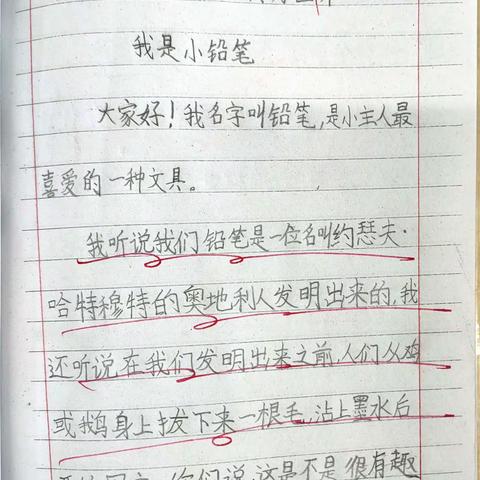 我是小铅笔
大家好！我名字叫铅笔，是小主人最
喜爱的一种文具。
我听说我们铅笔是一位名叫约瑟夫·
哈特穆特的奥地利人发明出来的，我
还听说，在我们发明出来之前，人们从鸡
或鹅身上拔下来一根毛，沾上墨水后
你们说，这是不是很有趣